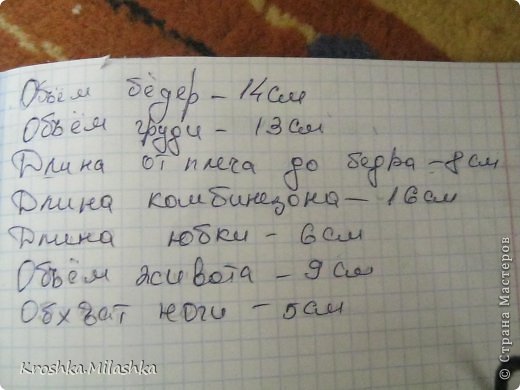 Объём бёдер - 14см
Объём груди - 13см
Длина от плеча до бедра - 8см
Длина комбинезона - 16см
Длина юбки - 6см
Объём живота - 9см
Обхват ноги - 5см
Kroshka.Milashka
© Страна Мастеров